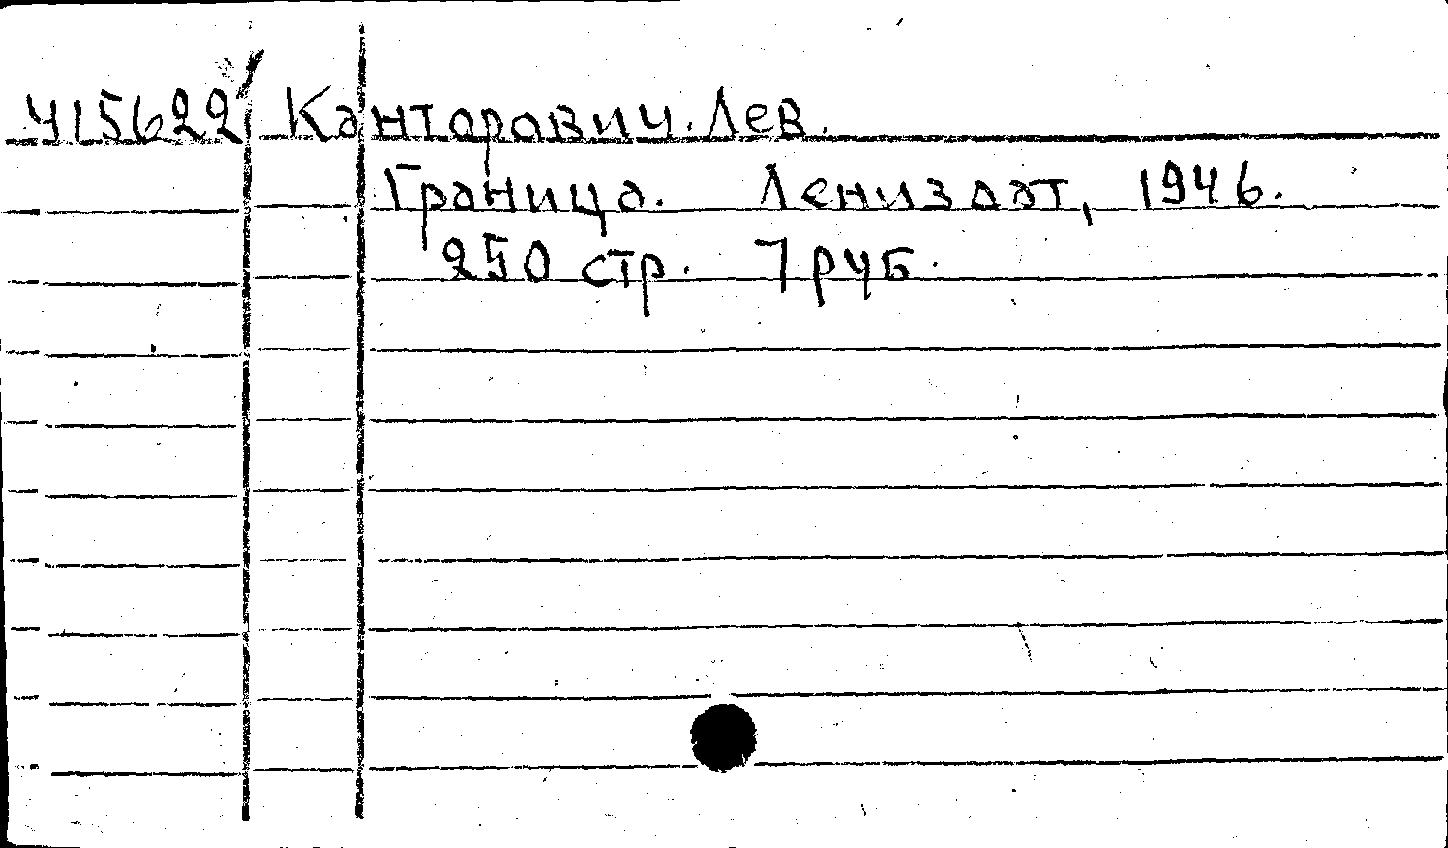 415622 Канторович. Лев.
Граница. Лениздат, 1946.
250 стр. 7 руб.